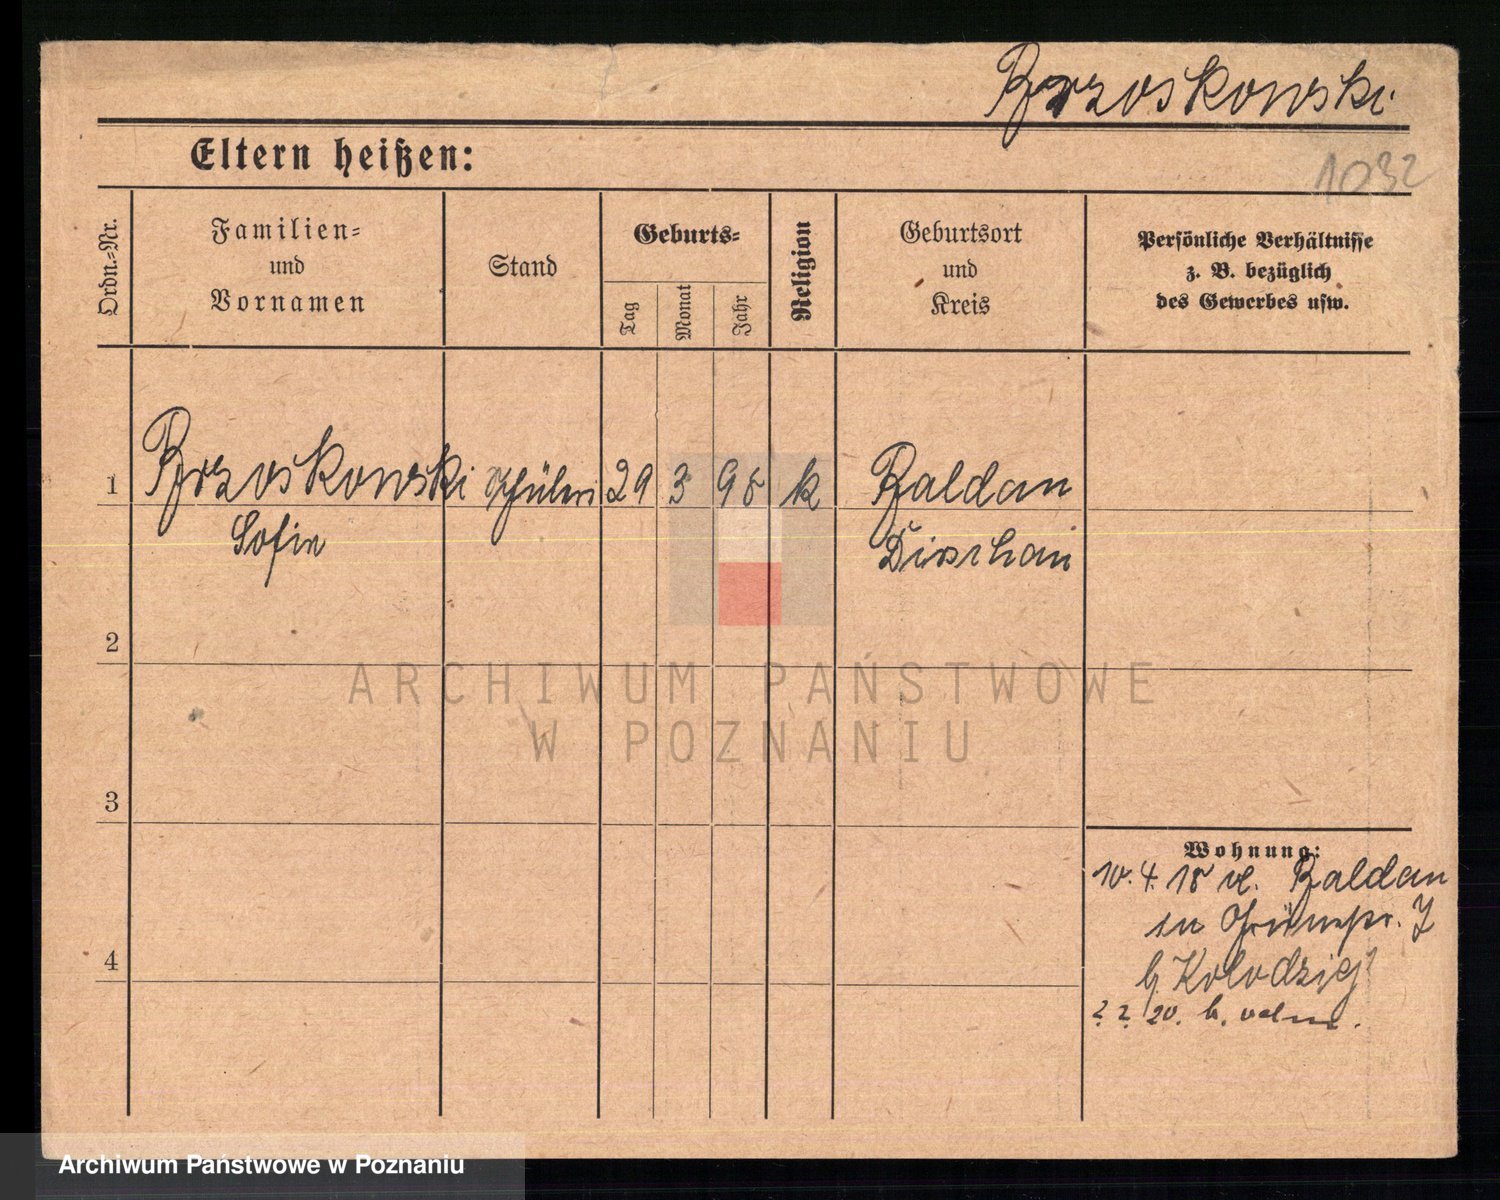 Brzoskowski
Eltern heißen:
1032
Ordn.-Nr.
Familien-
und
Vornamen
Stand
Geburts-
Tag
Monat
Jahr
Religion
Geburtsort
und
Kreis
Persönliche Verhältnisse
z. B. bezüglich
des Gewerbes usw.
1 Brzoskowski Schülerin 29 3 98 k Baldau
Sofie Dirschau
2
3
4
Wohnung:
10. 4. 18 vl. Baldau
in
b. Kolodziej
20.
ARCHIWUM PAŃSTWOWE
W POZNANIU
Archiwum Państwowe w Poznaniu